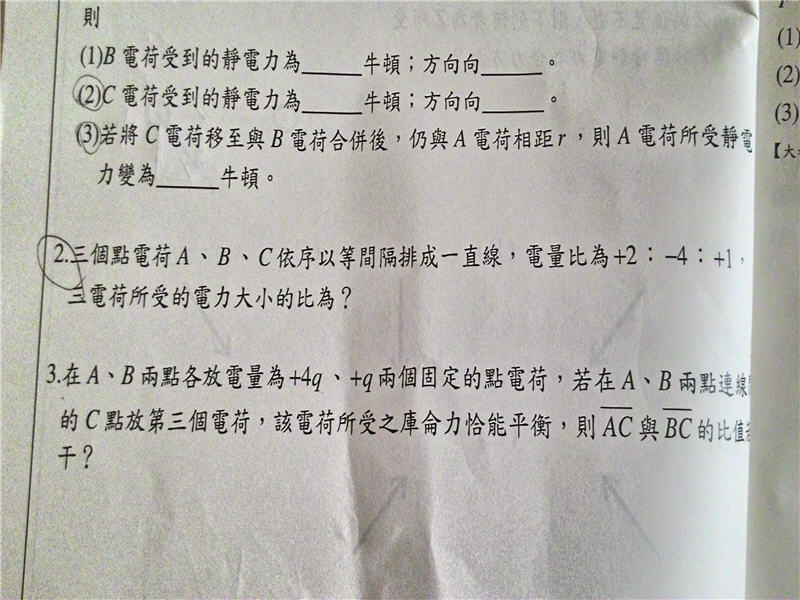 則
(1)B電荷受到的靜電力為_____牛頓；方向向_____。
(2)C電荷受到的靜電力為_____牛頓；方向向_____。
(3)若將C電荷移至與B電荷合併後，仍與A電荷相距r，則A電荷所受靜電
力變為_____牛頓。
2.三個點電荷A、B、C依序以等間隔排成一直線，電量比為+2：-4：+1，
三電荷所受的電力大小的比為？
3.在A、B兩點各放電量為+4q、+q兩個固定的點電荷，若在A、B兩點連線
的C點放第三個電荷，該電荷所受之庫侖力恰能平衡，則AC與BC的比值
干？
(1)
(2)
(3)
【大